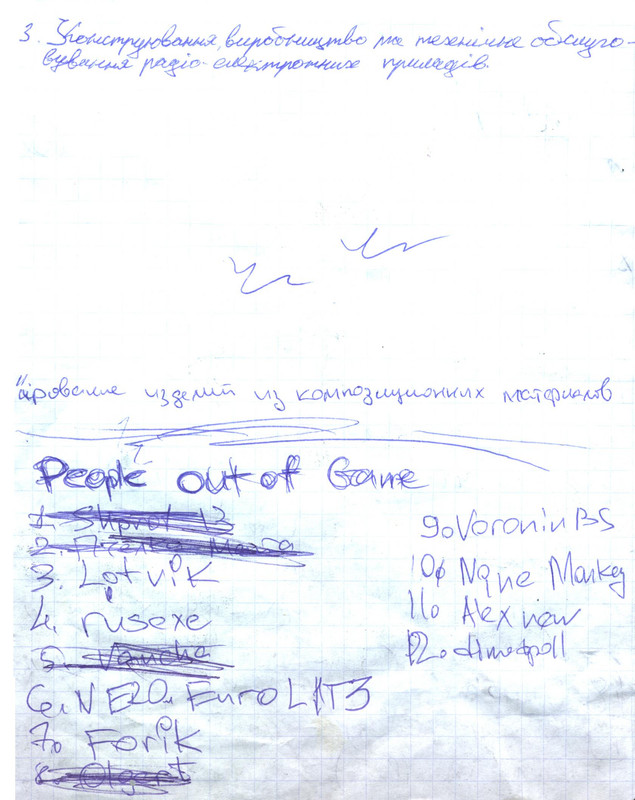 3. Конструювання, виробництво та технічне обслуго-
вування радіо-електронних приладів.
ирование изделий из композиционных материалов
People out of Game
1.
2.
3. Lotvik
4. rusexe
5.
6. NE20. Euro L1T3
7. Forik
8. Olgert
9. Voronin BS
10. Nqne Monkey
11. Alex view
12.